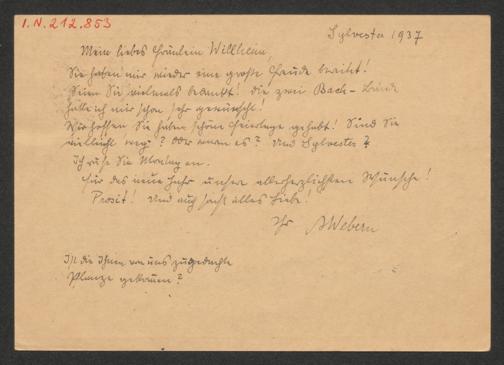 I.N. 212.853
Sylvester 1937
Mein liebes Fräulein Willheim,
Sie haben mir wieder eine große Freude bereitet!
Seien Sie vielmals bedankt! Die zwei Bach-Bände
hatte ich mir schon sehr gewünscht!
Wir hoffen, Sie haben schöne Feiertage gehabt! Sind Sie
vielleicht weg? Oder waren es? Und Sylvester?
Ich rufe Sie Montag an.
Für das neue Jahr unsere allerherzlichsten Wünsche!
Prosit! Und auch sonst alles Liebe!
Ihr AWebern
Ist die Ihnen von uns zugedachte
Pflanze gekommen?